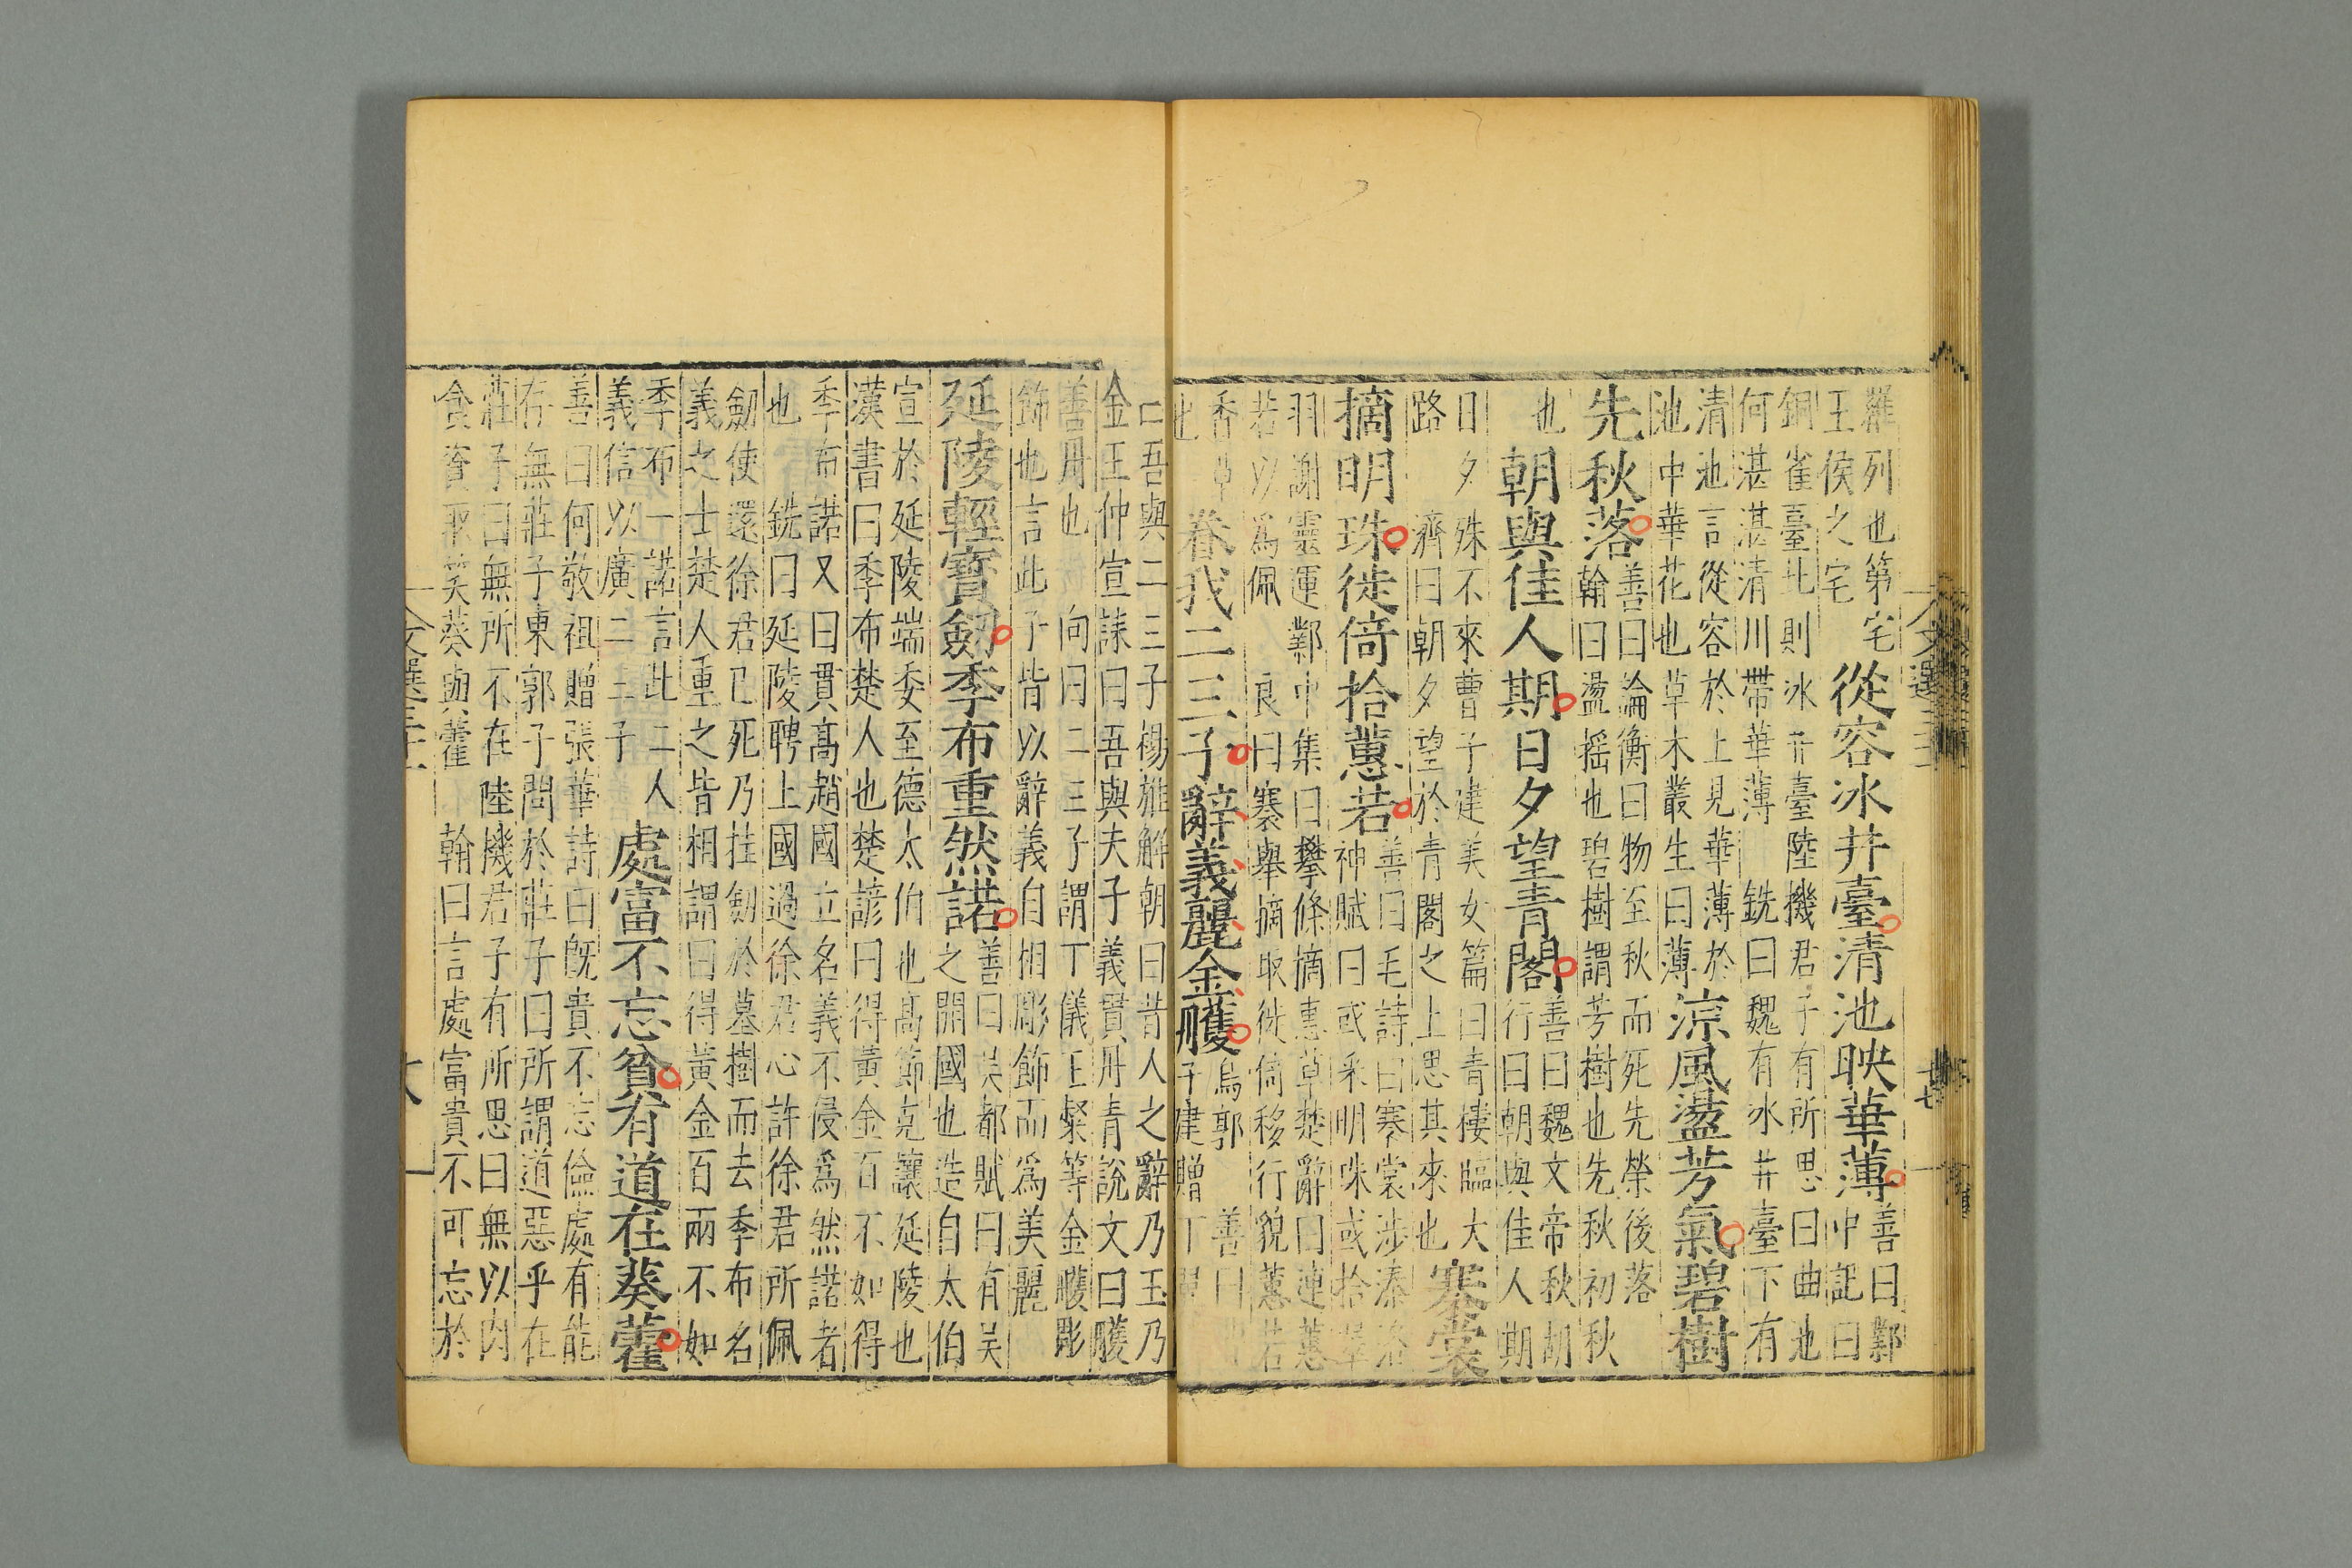 羅列也第宅王侯之宅從容冰井臺清池映華薄善曰鄴中記曰
銅雀臺北則冰井臺陸機君子有所思曰曲池何湛湛清川帶華薄 銑曰魏有冰井臺下有
清池言從容於上見華薄於池中華花也草木叢生曰薄涼風盪芳氣碧樹
先秋落善曰論衡曰物至秋而死先榮後落翰曰盪摇也碧樹謂芳樹也先秋秋初秋
也朝與佳人期日夕望青閣善曰魏文帝秋胡行曰朝與佳人期
日夕殊不來曹子建美女篇曰青樓臨大路 濟曰朝夕望於青閣之上思其來也褰裳
摘明珠徙倚拾蕙若善曰毛詩曰褰裳涉溱洛神賦曰或采明珠或拾翠
羽謝靈運鄴中集曰攀條摘蕙草楚辭曰連蕙若以為佩 良曰褰舉摘取徙倚移行貌蕙若
香草也眷我二三子辭義麗金雘烏郭 善曰子建贈丁
曰吾與二三子楊雄解朝曰昔人之辭乃玉乃金王仲宣誄曰吾與夫子義貫丹青說文曰雘
善丹也 向曰二三子謂丁儀王粲等金雘彫飾也言此子皆以辭義自相彫飾而為美麗
延陵輕寶劒季布重然諾善曰吴都賦曰有吴之開國也造自太伯
宣於延陵端委至德太伯也高節克讓延陵也漢書曰季布楚人也楚諺曰得黃金百不如得
季布諾又曰貫高趙國立名義不侵為然諾者也 銑曰延陵聘上國過徐君心許徐君所佩
劒使還徐君已死乃挂劒於墓樹而去季布名義之士楚人重之皆相謂曰得黃金百兩不如
季布一諾言此二人義信以廣二三子處富不忘貧有道在葵藿
善曰何敬祖贈張華詩曰旣貴不忘儉處有能存無莊子東郭子問於莊子曰所謂道惡乎在
莊子曰無所不在陸機君子有所思曰無以肉食資取笑葵與藿 翰曰言處富貴不可忘於